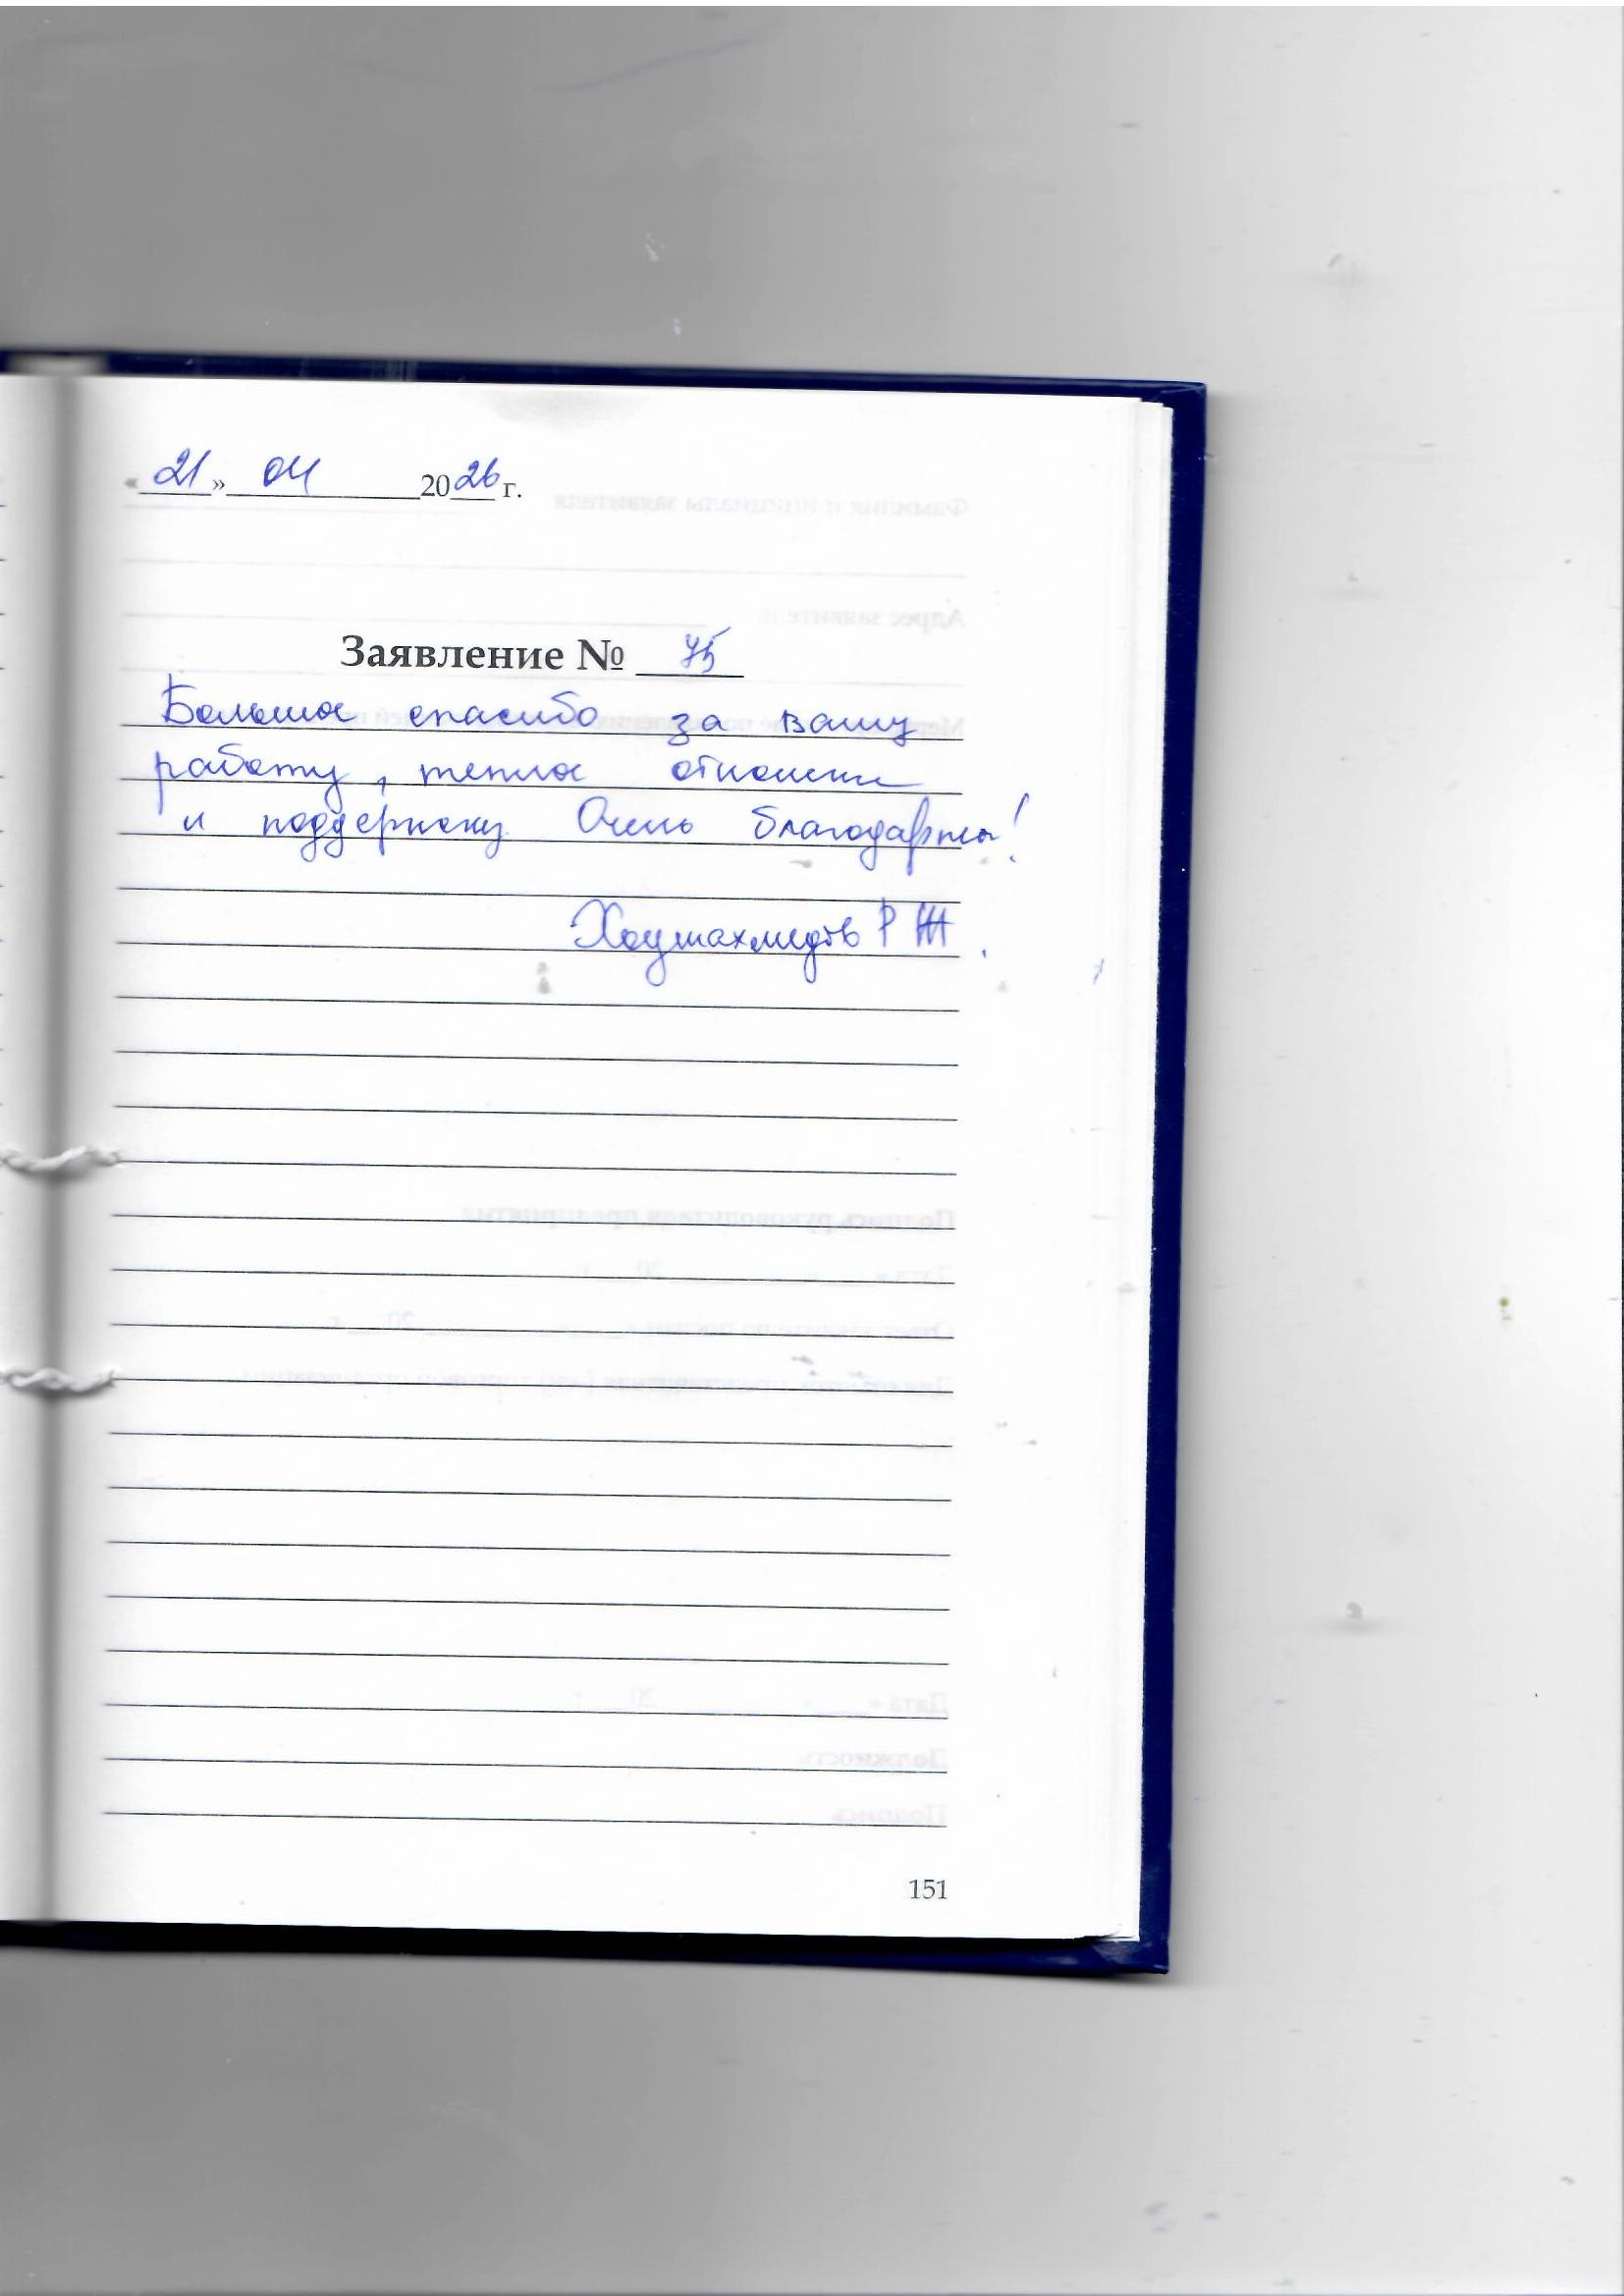 «21» 04 2026 г.
Заявление № 75
Большое спасибо за вашу
работу, теплое отношение
и поддержку. Очень благодарны!
Р Ж.
151